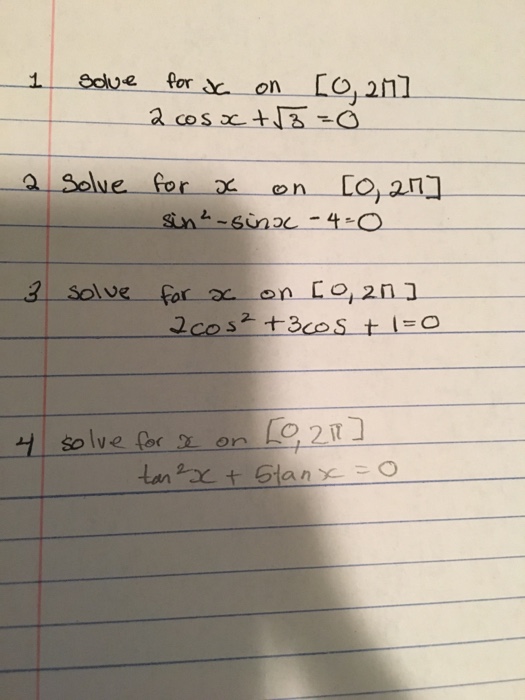 1 solve for x on [0, 2π]
2 cos x + √3 = 0
2 Solve for x on [0, 2π]
sin² - sinx - 4 = 0
3 solve for x on [0, 2π]
2cos² + 3cos + 1 = 0
4 solve for x on [0, 2π]
tan²x + 5tanx = 0